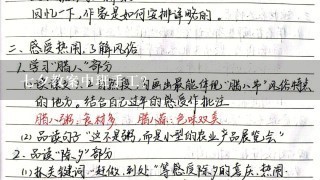 回忆一下,作家是如何安排详略的。
二、感受热闹,了解风俗
1.学习"腊八"部分
画出最能体现"腊八节"风俗特点
的地方。结合自己过年的感受作批注
腊八粥:食材多 腊八蒜:色味双美
(2)品读句子"这不是粥,而是小型的农业产品展览会"
2.品读"除夕"部分
(1)抓关键词"赶做、到处"等感受除夕的喜庆、热闹
七夕教案中班手工?